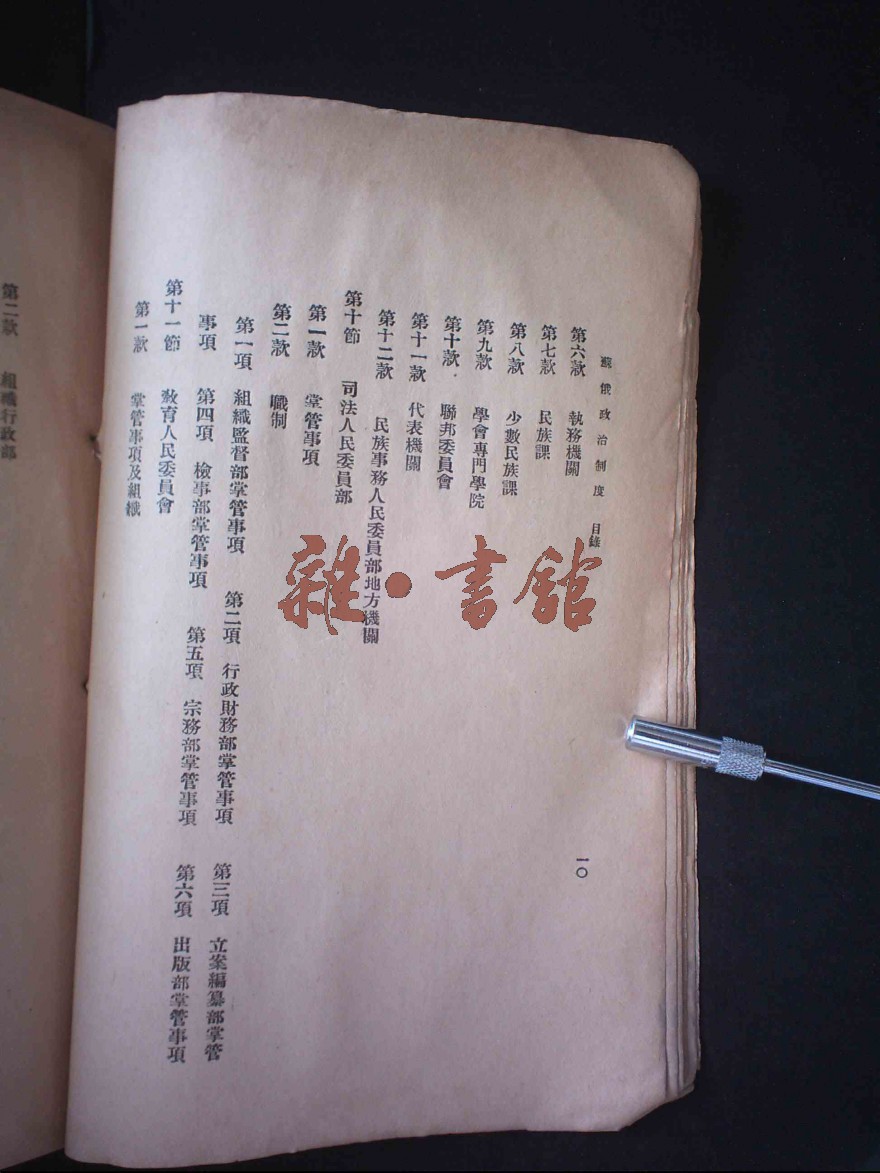 蘇俄政治制度 目錄
一〇
第六款 執務機關
第七款 民族課
第八款 少數民族課
第九款 學會專門學院
第十款 聯邦委員會
第十一款 代表機關
第十二款 民族事務人民委員部地方機關
第十節 司法人民委員部
第一款 掌管事項
第二款 職制
第一項 組織監督部掌管事項 第二項 行政財務部掌管事項 第三項 立案編纂部掌管
事項 第四項 檢事部掌管事項 第五項 宗務部掌管事項 第六項 出版部掌管事項
第十一節 敎育人民委員會
第一款 掌管事項及組織
第二款 組織行政部
雜·書館